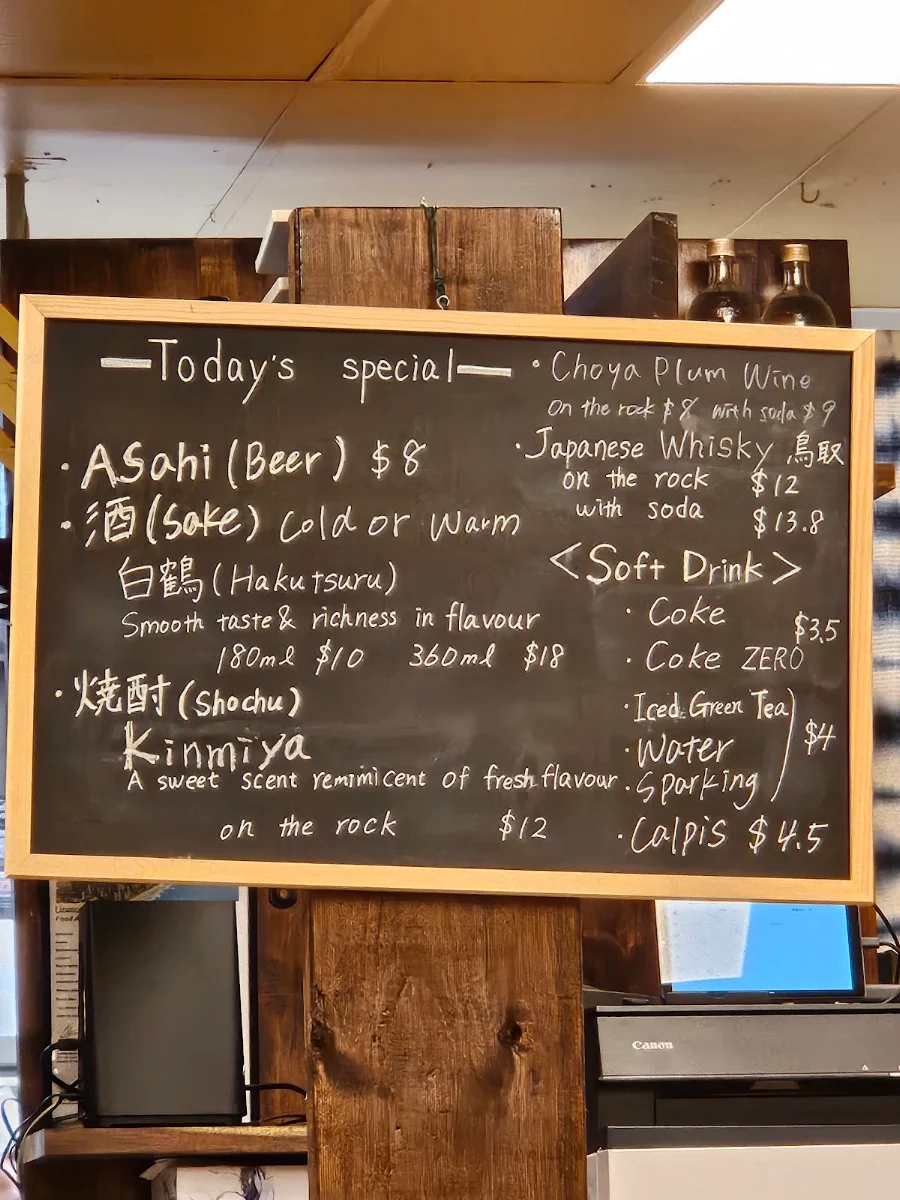 Today's special
・Asahi (Beer) $8
・酒 (Sake) Cold or Warm
白鶴 (Hakutsuru)
Smooth taste & richness in flavour
180ml $10 360ml $18
・焼酎 (Shochu)
Kinmiya
A sweet scent remimicent of fresh flavour
on the rock $12
・Choya Plum Wine
On the rock $8 with soda $9
・Japanese Whisky 鳥取
on the rock $12
with soda $13.8
<Soft Drink>
・Coke
$3.5
・Coke ZERO
・Iced Green Tea
・Water
$4
・Sparking
・Calpis $4.5
Canon